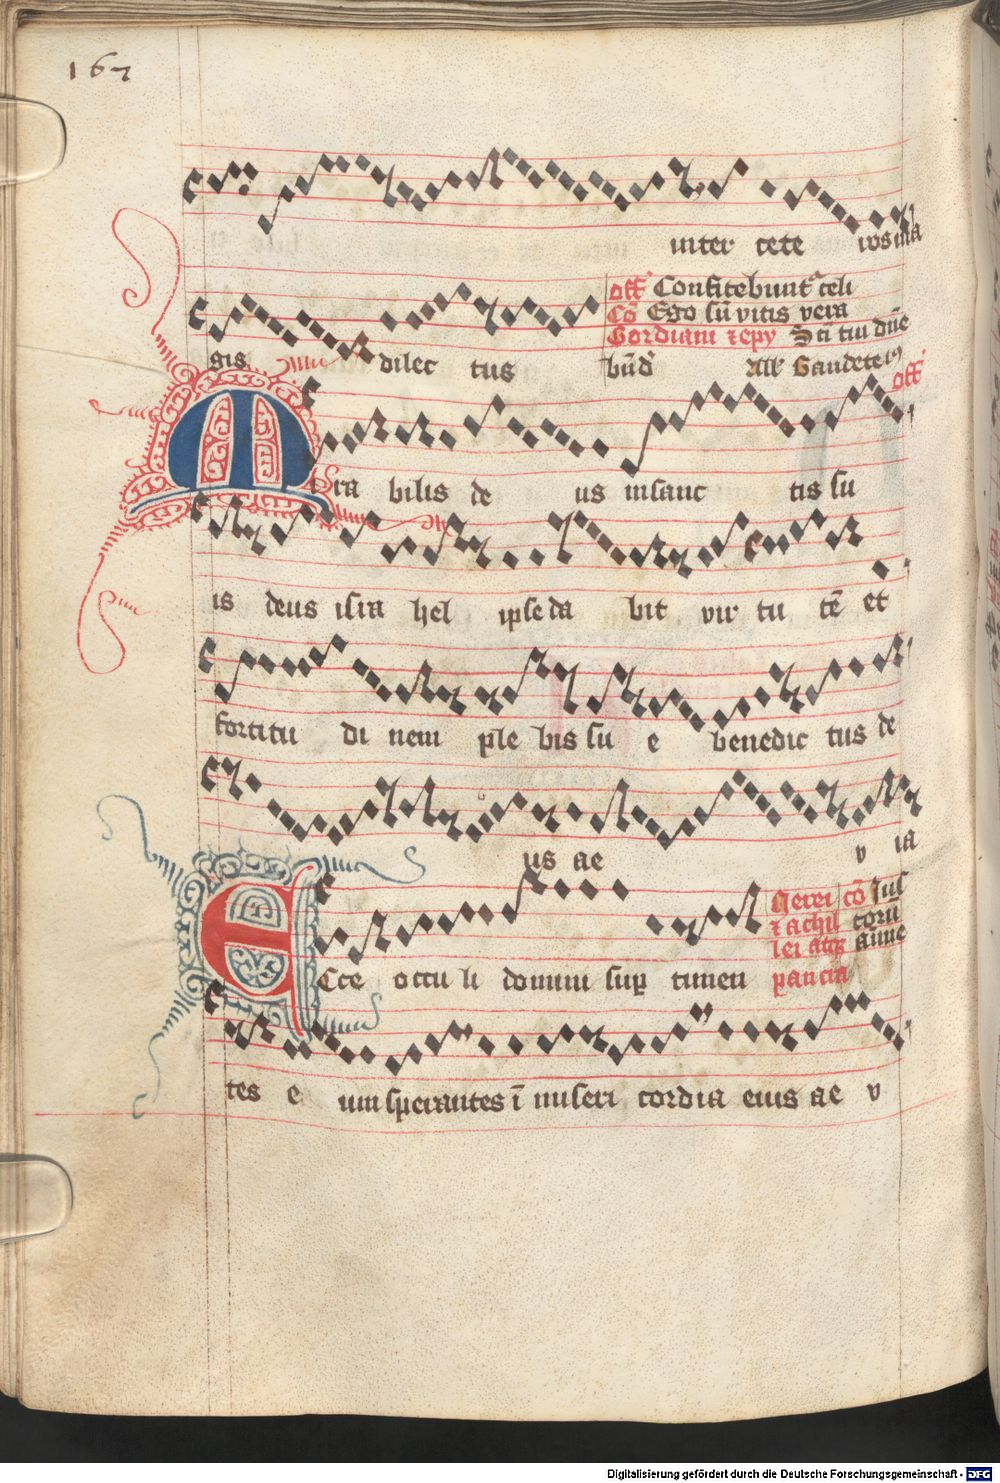 167
inter cete ros ma
off̄ Confitebunt᷑ celi
Cō Ego sū vitis vera
Gordiani ⁊ epy Scī tui dn̄e
gis dilec tus bn̄d All᷑ Gaudete
off̄
Mira bilis de us in sanc tis su
is deus isra hel ipse da bit vir tu tē et
fortitu di nem ple bis su e benedic tus de
us ae v ia
Nerei cō Jus
⁊ achil torū
lei atqꝫ anime
pancia
Ecce occu li domini sup timen
tes e um sperantes ī miseri cordia eius ae v
Digitalisierung gefördert durch die Deutsche Forschungsgemeinschaft - DFG